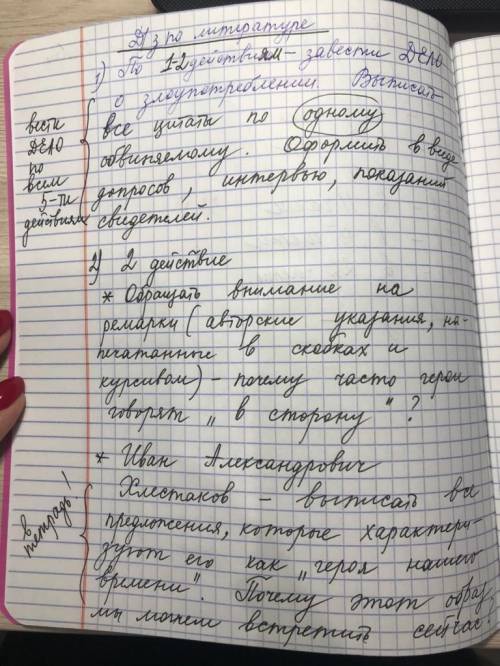 Д/з по литературе
1) По 1-2 действиям – завести ДЕЛО
о злоупотреблении. Выписать
все цитаты по одному
обвиняемому. Оформить в виде
допросов, интервью, показаний
свидетелей.
вести
ДЕЛО
по
всем
5-ти
действиям
2) 2 действие
* Обращать внимание на
ремарки (авторские указания, на-
печатанные в скобках и
курсивом) – почему часто герои
говорят „в сторону"?
* Иван Александрович
Хлестаков – выписать все
предложения, которые характери-
зуют его как „героя нашего
времени". Почему этот образ
мы можем встретить сейчас?
в
тетрадь!